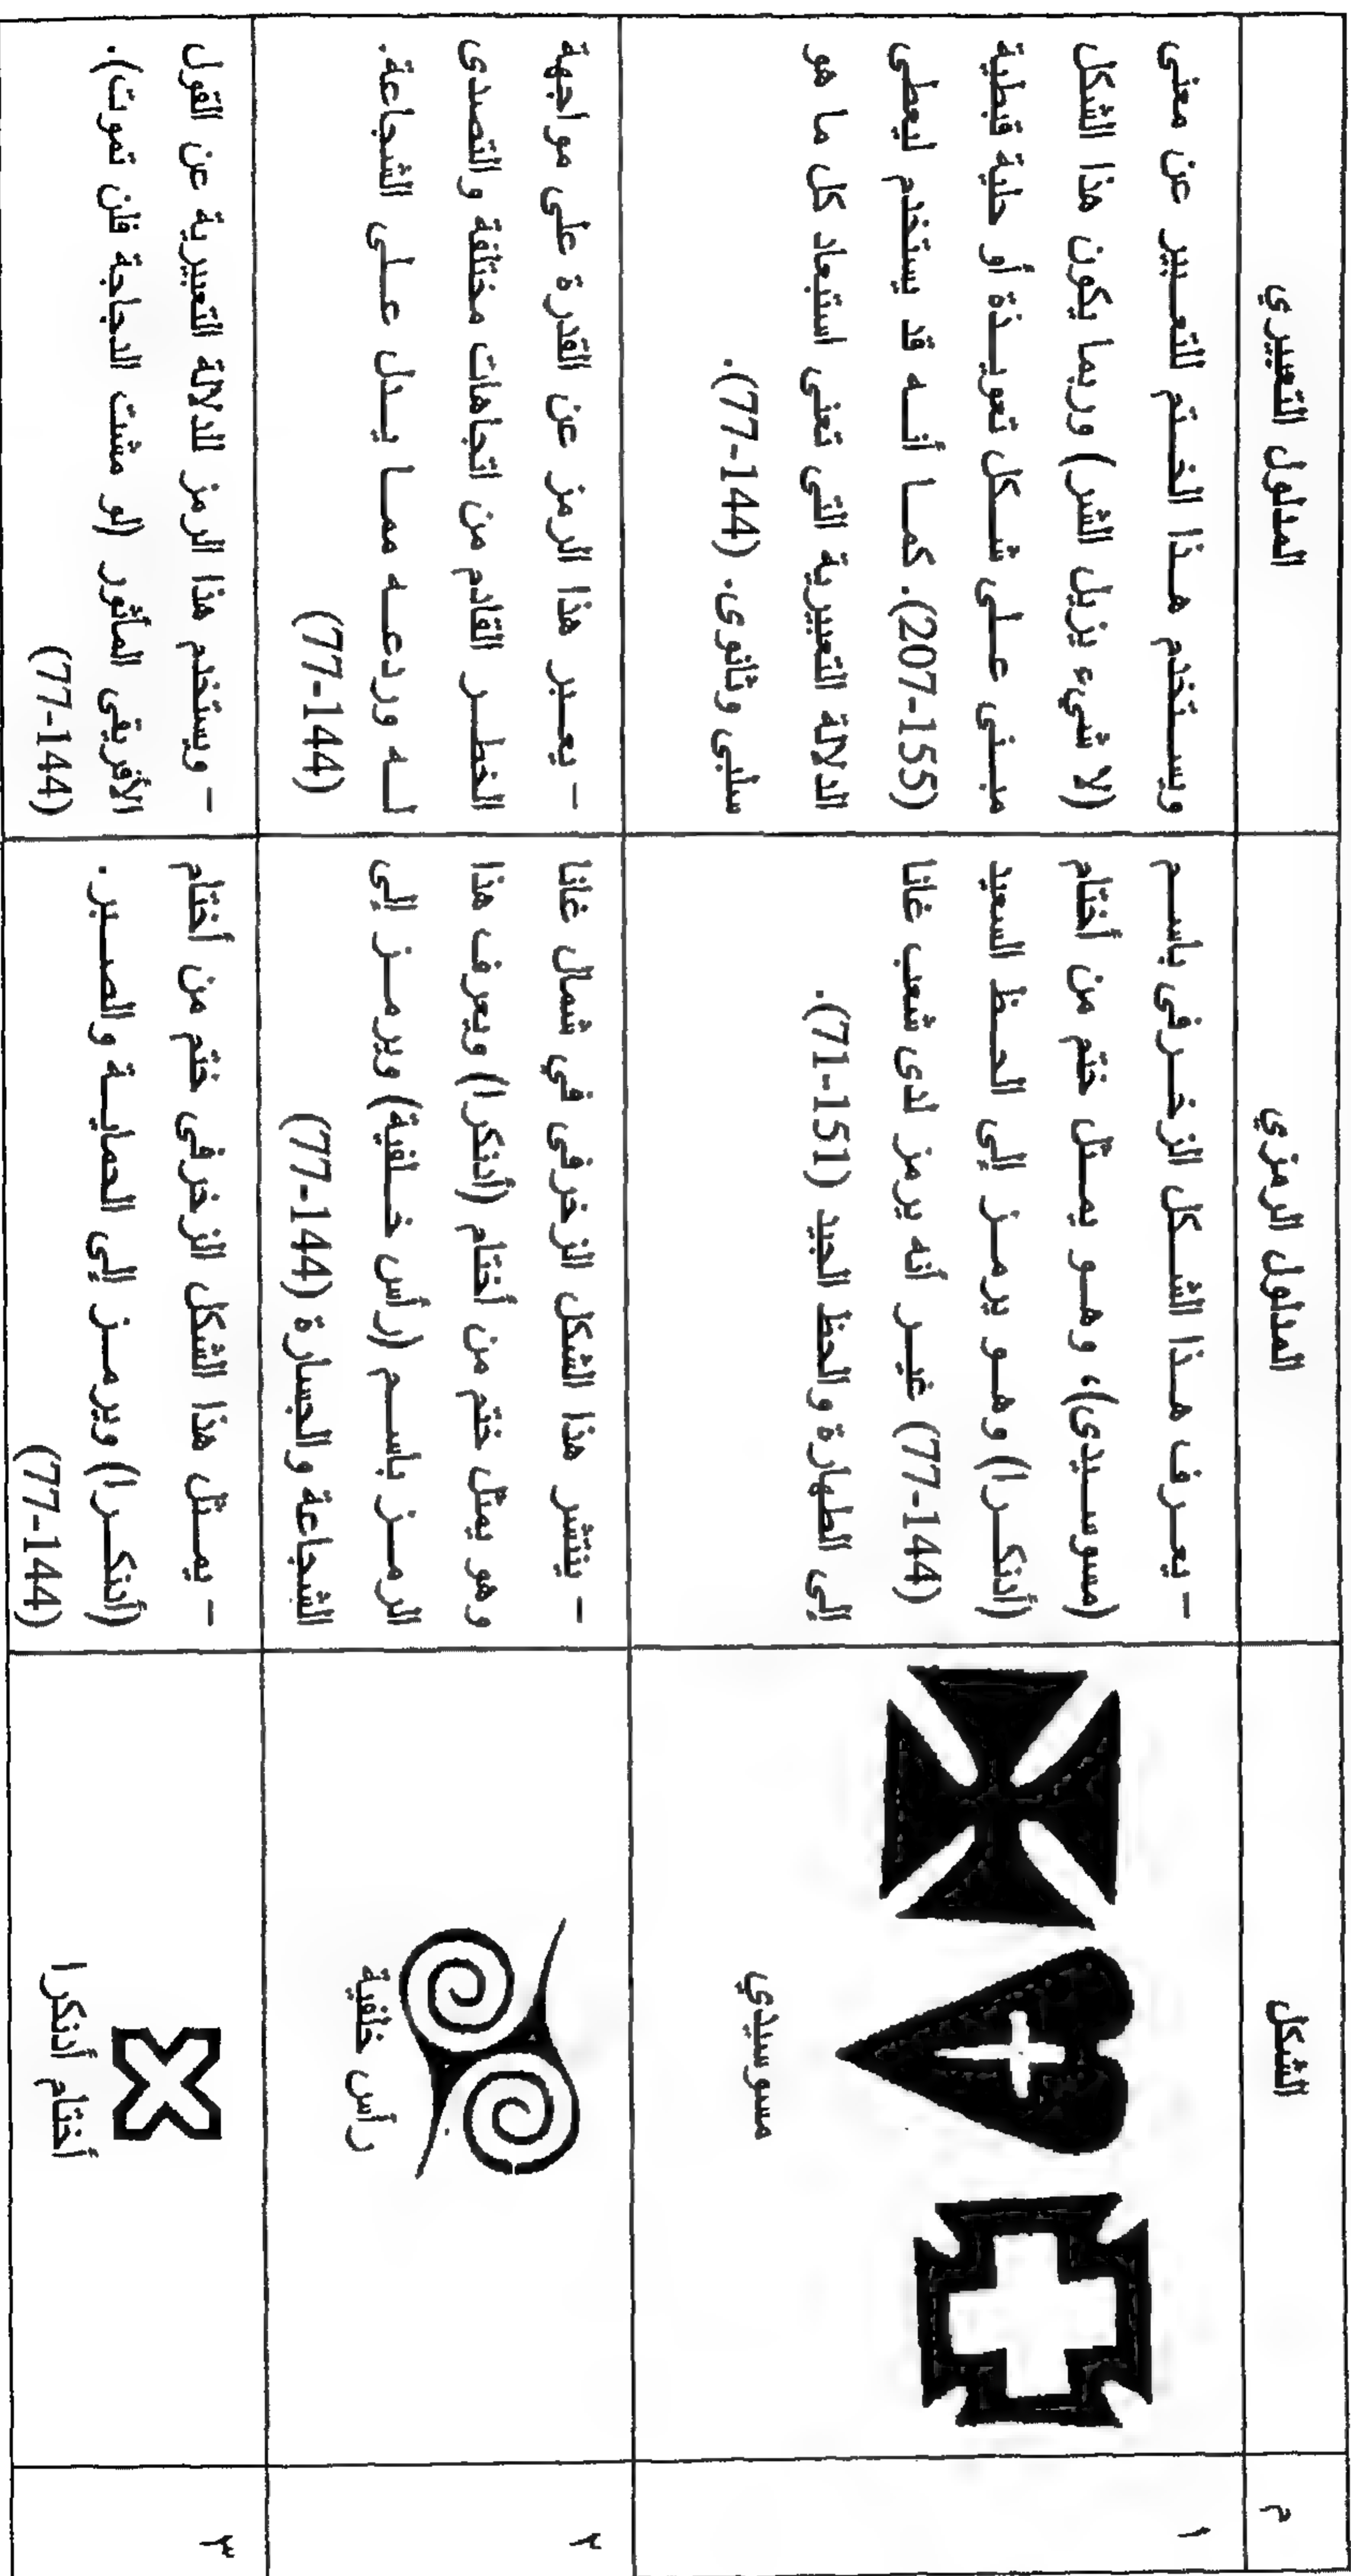 م
الشكل
المدلول الرمزي
المدلول التعبيري
١
مسوسيدي
- يعرف هذا الشكل الزخرفى باسم
(مسوسيدى)، وهو يمثل ختم من أختام
(أدنكرا) وهو يرمز إلى الحظ السعيد
(77-144) غير أنه يرمز لدى شعب غانا
إلى الطهارة والحظ الجيد (71-151).
ويستخدم هذا الختم للتعبير عن معنى
(لا شيء يزيل الشر) وربما يكون هذا الشكل
مبنى على شكل تعويذة أو حلية قبطية
(207-155). كما أنه قد يستخدم ليعطى
الدلالة التعبيرية التى تعنى استبعاد كل ما هو
سلبى وثانوى. (77-144).
٢
رأس خلفية
- ينتشر هذا الشكل الزخرفى في شمال غانا
وهو يمثل ختم من أختام (أدنكرا) ويعرف هذا
الرمز باسم (رأس خلفية) ويرمز إلى
الشجاعة والجسارة (77-144)
- يعبر هذا الرمز عن القدرة على مواجهة
الخطر القادم من اتجاهات مختلفة والتصدى
له وردعه مما يدل على الشجاعة.
(77-144)
٣
أختام أدنكرا
- يمثل هذا الشكل الزخرفى ختم من أختام
(أدنكرا) ويرمز إلى الحماية والصبر.
(77-144)
- ويستخدم هذا الرمز للدلالة التعبيرية عن القول
الأفريقى المأثور (لو مشت الدجاجة فلن تموت).
(77-144)